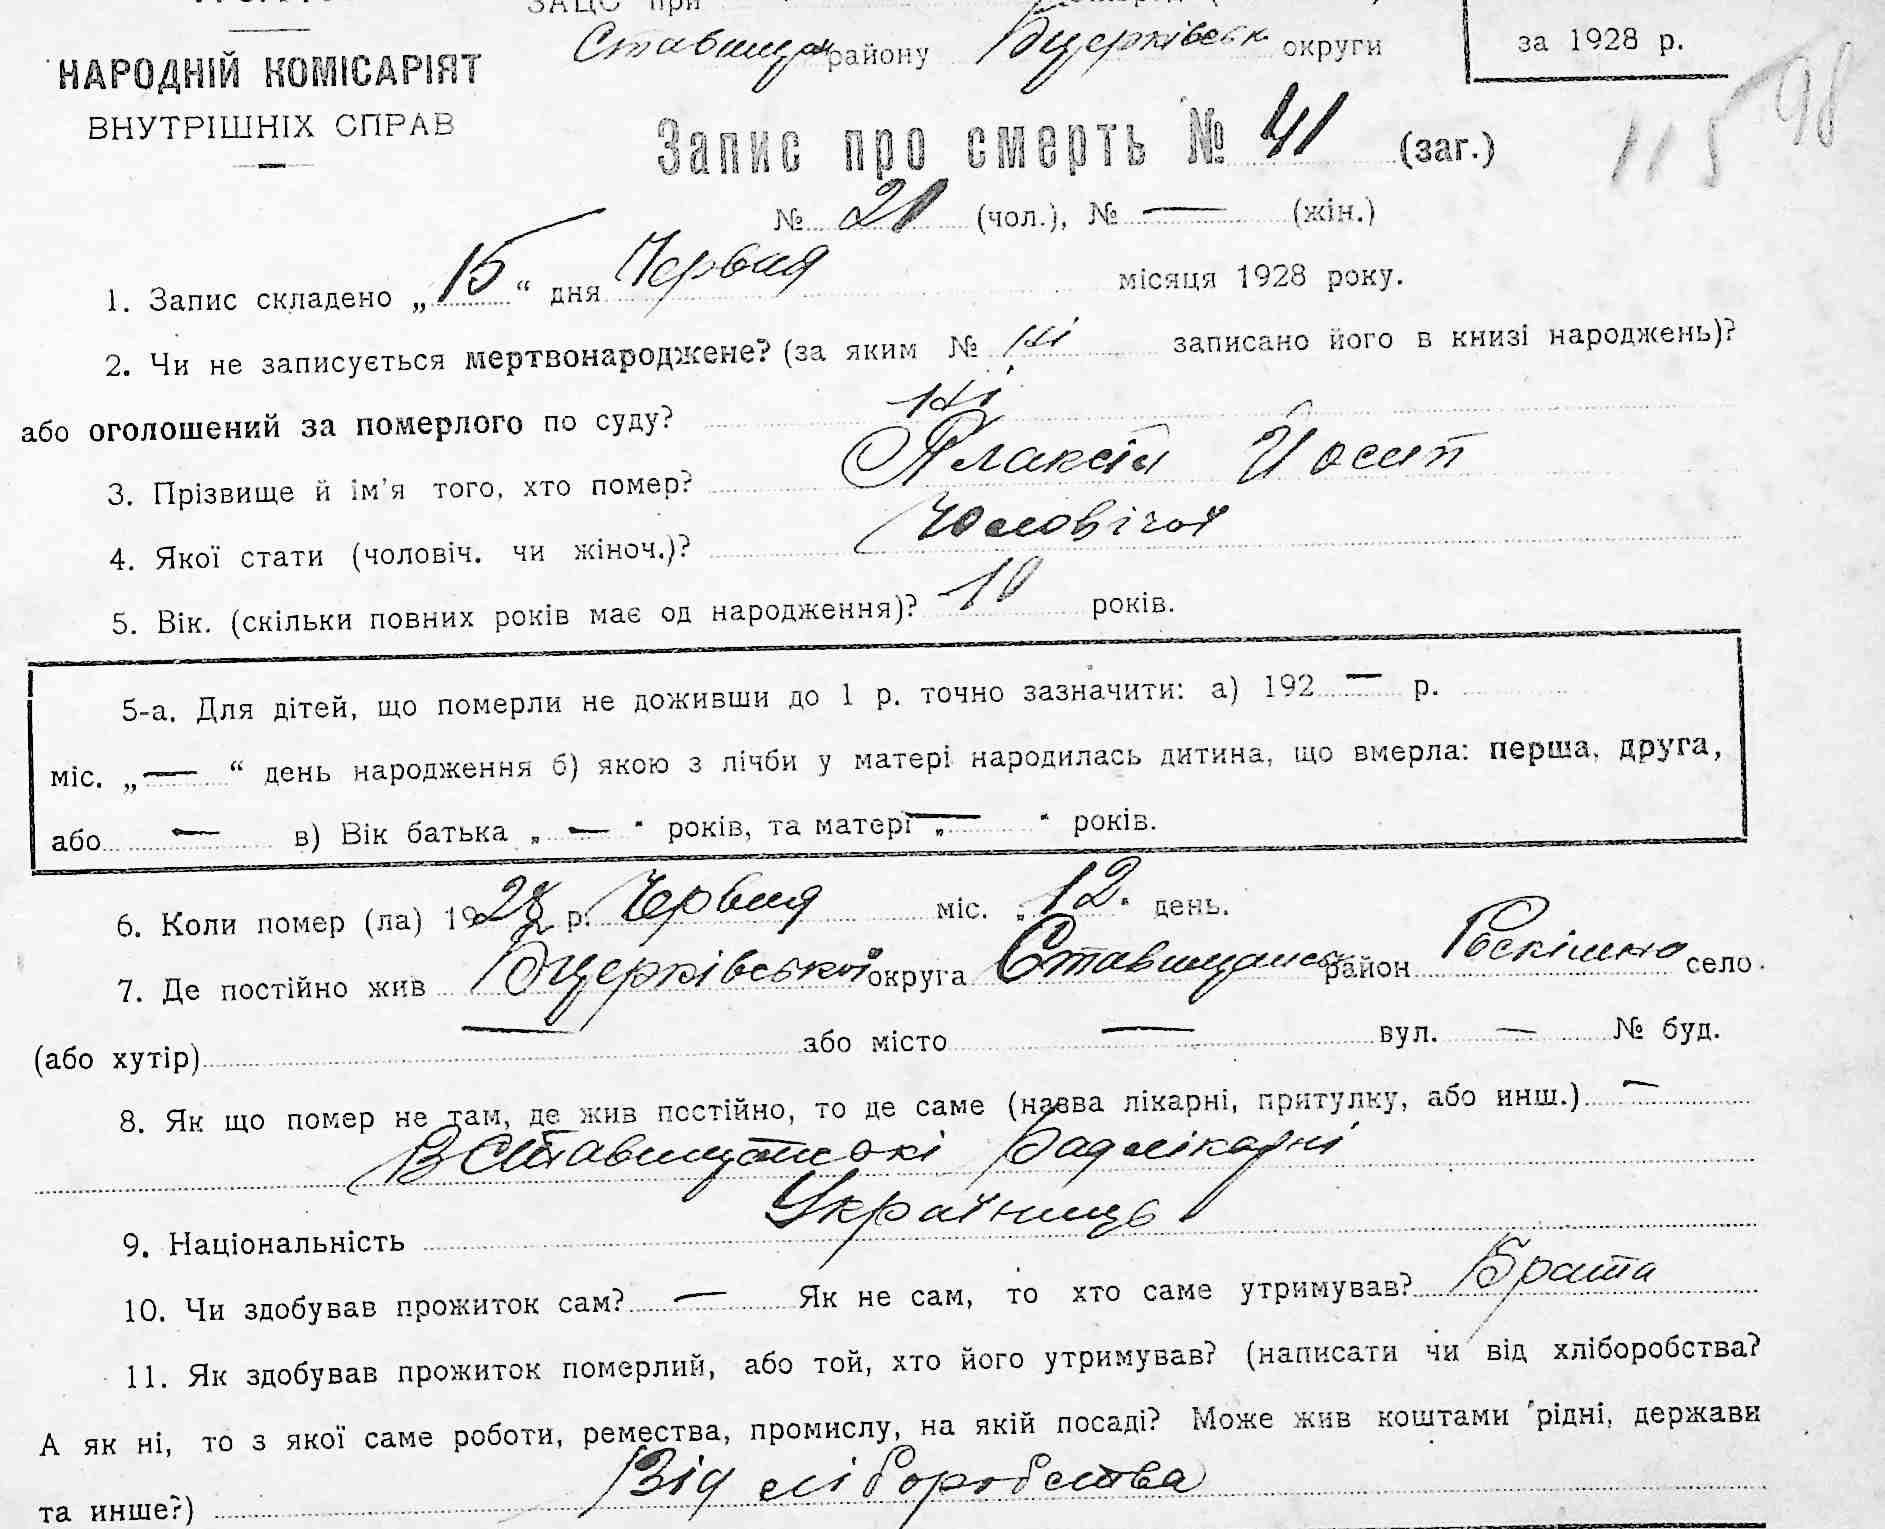 ЗАЦС при
Ставищан району Бцерківськ округи
за 1928 р.
НАРОДНІЙ КОМІСАРІЯТ
ВНУТРІШНІХ СПРАВ
Запис про смерть № 41 (заг.)
115 98
№ 21 (чол.), № — (жін.)
1. Запис складено „15“ дня Червня місяця 1928 року.
2. Чи не записується мертвонароджене? (за яким № Ні записано його в книзі народжень)?
або оголошений за померлого по суду? Ні
3. Прізвище й ім'я того, хто помер? Плаксій Йосип
4. Якої стати (чоловіч. чи жіноч.)? Чоловічої
5. Вік. (скільки повних років має од народження)? 10 років.
5-а. Для дітей, що померли не доживши до 1 р. точно зазначити: а) 192 — р.
міс. „—“ день народження б) якою з лічби у матері народилась дитина, що вмерла: перша, друга,
або — в) Вік батька „—“ років, та матері „—“ років.
6. Коли помер (ла) 1928 р. Червня міс. „12“ день.
7. Де постійно жив Бцерківської округа Ставищанськ район Роскішно село
(або хутір) — або місто — вул. — № буд.
8. Як що помер не там, де жив постійно, то де саме (назва лікарні, притулку, або инш.) —
В Ставищанські Радлікарні
9. Національність Українець
10. Чи здобував прожиток сам? — Як не сам, то хто саме утримував? Брата
11. Як здобував прожиток померлий, або той, хто його утримував? (написати чи від хліборобства?
А як ні, то з якої саме роботи, ремества, промислу, на якій посаді? Може жив коштами рідні, держави
та инше?) Від хліборобства